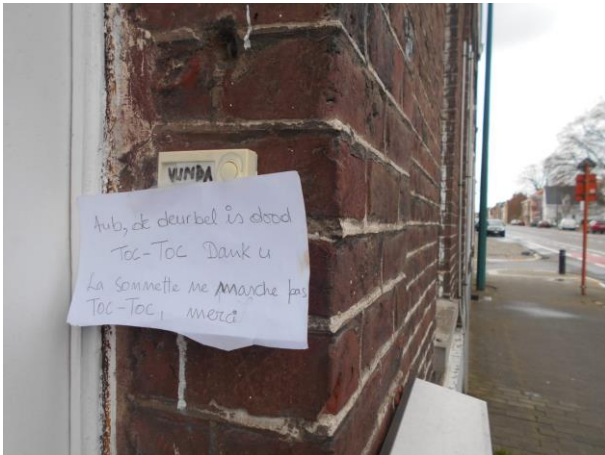 VUNDA
Aub, de deurbel is dood
Toc-Toc Dank u
La sonnette ne marche pas
Toc-Toc, merci